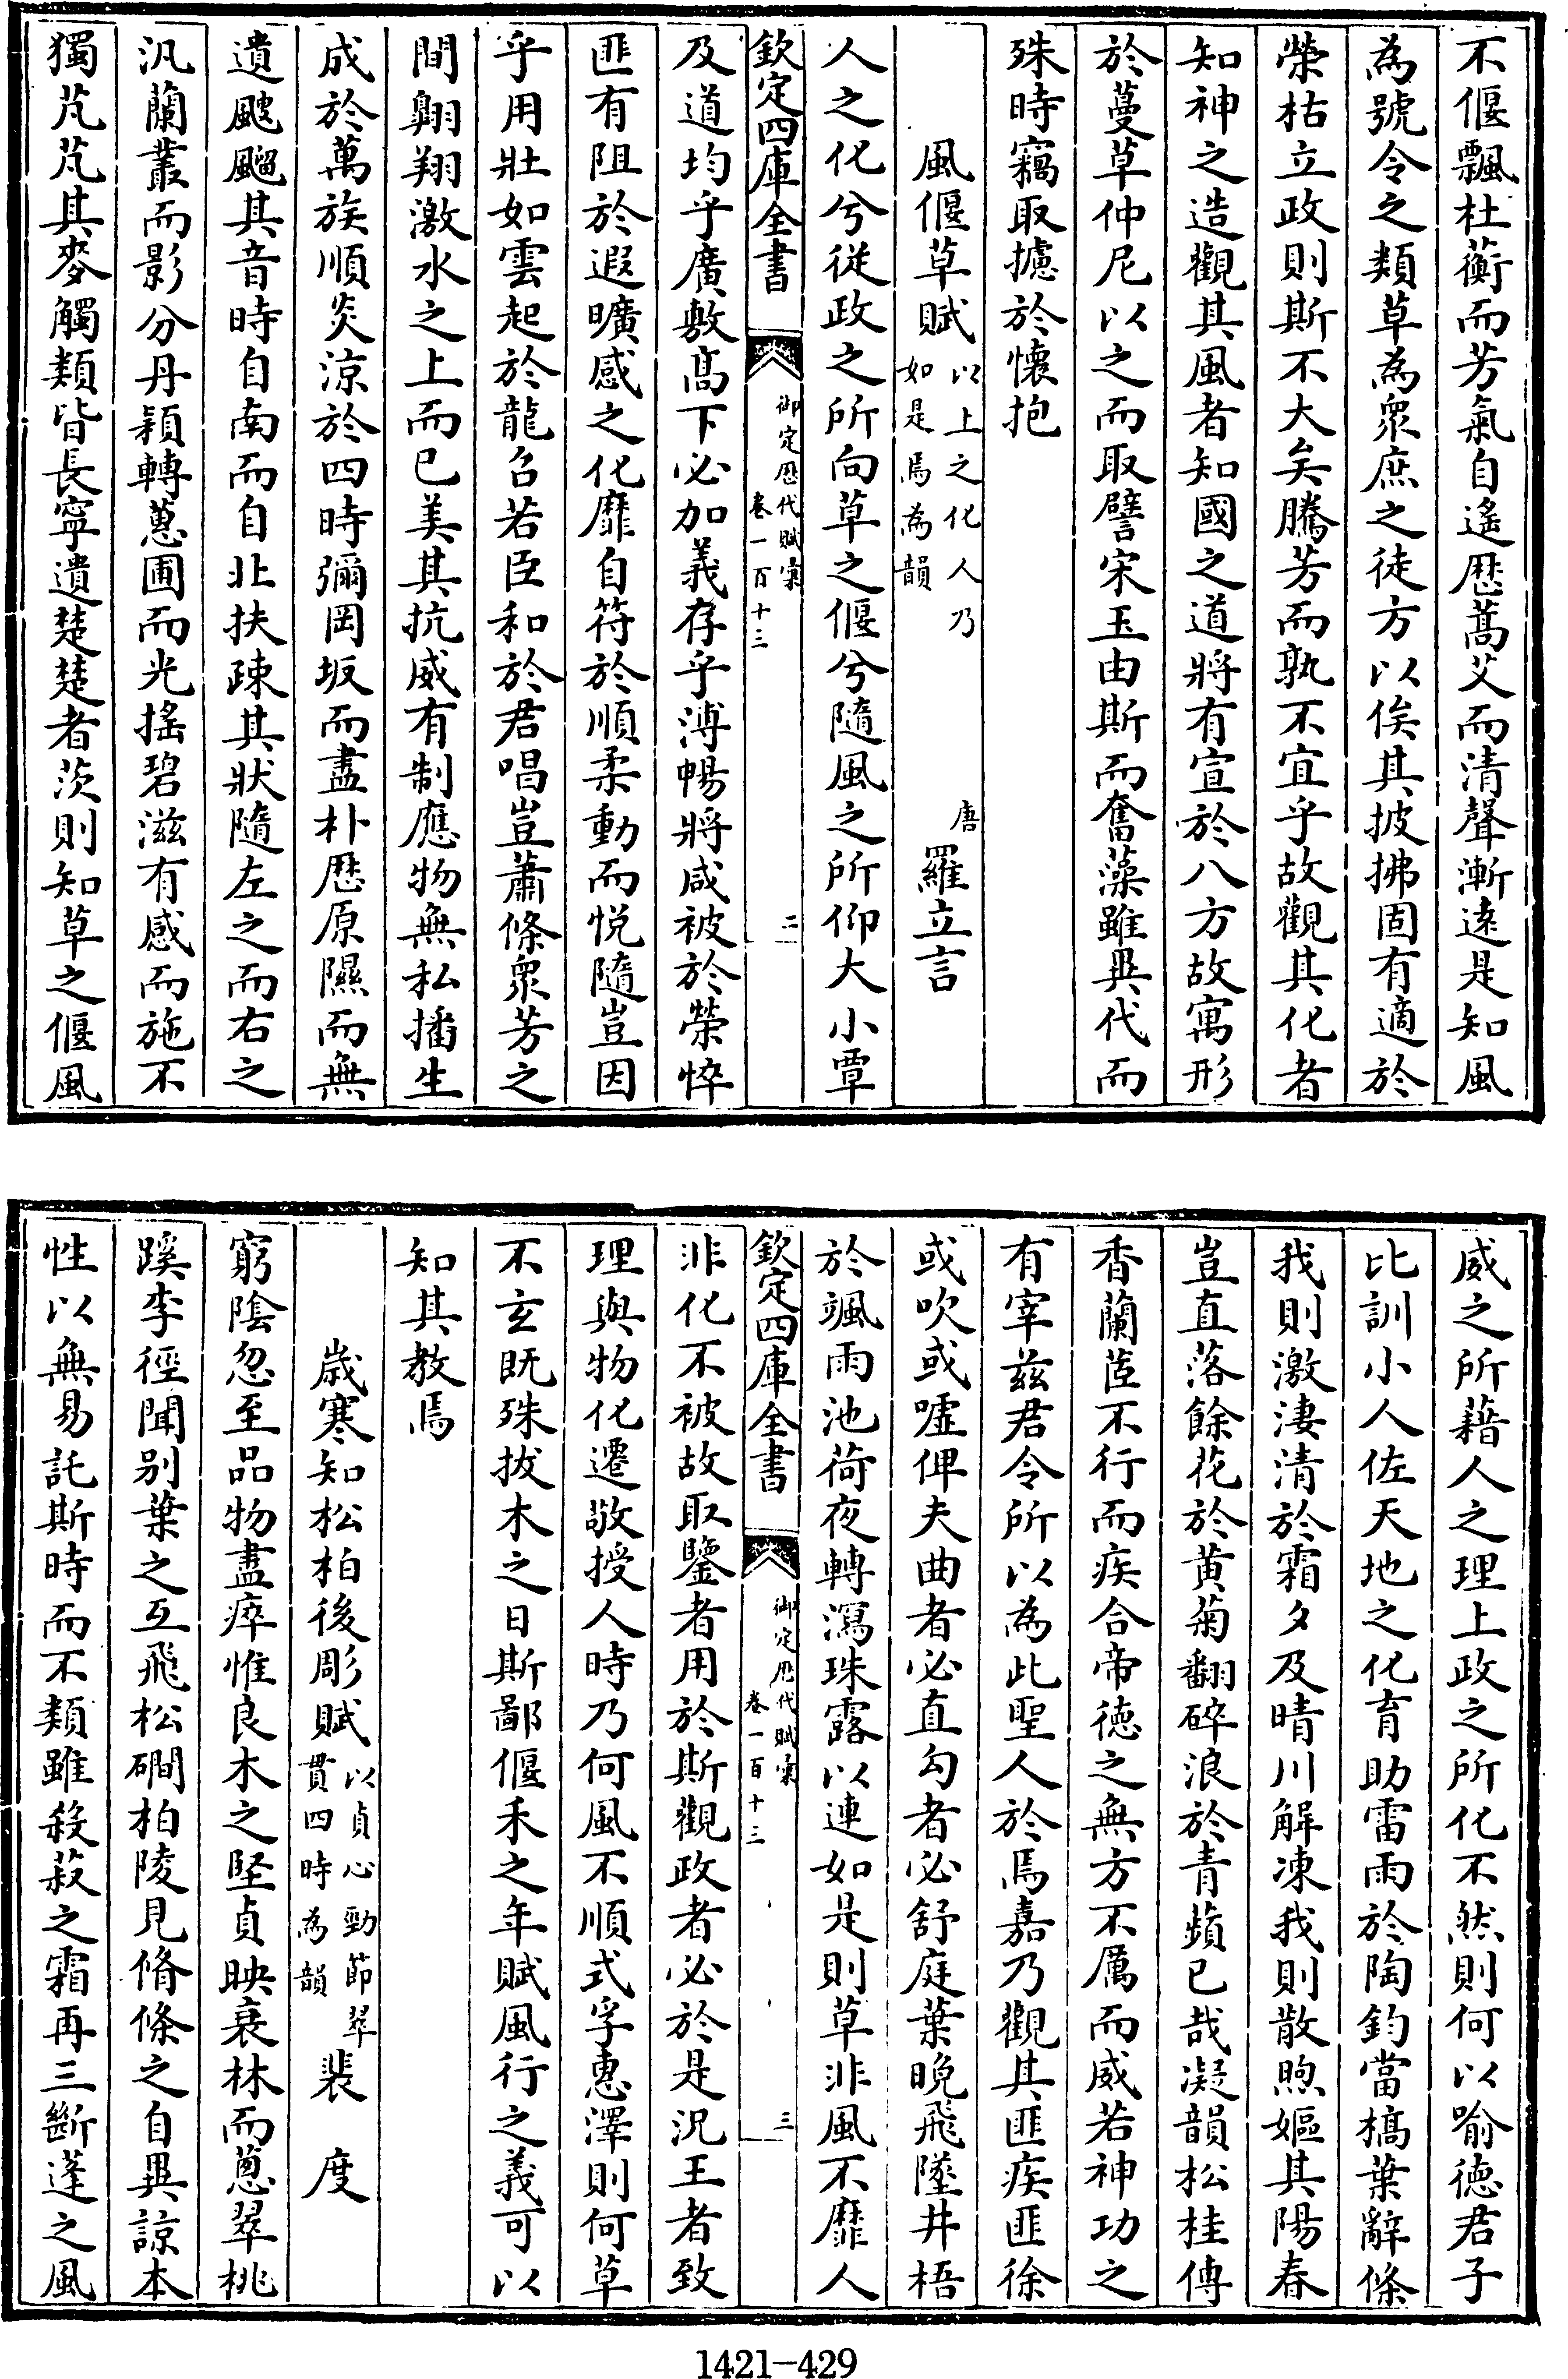 不偃飄杜蘅而芳氣自遙歴蒿艾而清聲漸逺是知風
為號令之類草為衆庶之徒方以俟其披拂固有適於
榮枯立政則斯不大矣騰芳而孰不宜乎故觀其化者
知神之造觀其風者知國之道將有宣於八方故寓形
於蔓草仲尼以之而取譬宋玉由斯而奮藻雖異代而
殊時竊取攄於懷抱
風偃草賦以上之化人乃如是焉為韻 唐羅立言
人之化兮從政之所向草之偃兮隨風之所仰大小覃
欽定四庫全書 御定歴代賦彙卷一百十三 二
及道均乎廣敷髙下必加義存乎溥暢將咸被於榮悴
匪有阻於遐曠感之化靡自符於順柔動而悅隨豈因
乎用壯如雲起於龍召若臣和於君唱豈蕭條衆芳之
間翺翔激水之上而已美其抗威有制應物無私播生
成於萬族順炎涼於四時彌岡坂而盡朴歴原隰而無
遺颸飀其音時自南而自北扶疎其狀隨左之而右之
汎蘭叢而影分丹穎轉蔥圃而光搖碧滋有感而施不
獨芃芃其麥觸類皆長寧遺楚楚者茨則知草之偃風
威之所藉人之理上政之所化不然則何以喻徳君子
比訓小人佐天地之化育助雷雨於陶鈞當槁葉辭條
我則激淒清於霜夕及晴川解凍我則散煦嫗其陽春
豈直落餘花於黄菊翻碎浪於青蘋已哉凝韻松桂傳
香蘭茝不行而疾合帝徳之無方不厲而威若神功之
有宰兹君令所以為此聖人於焉嘉乃觀其匪疾匪徐
或吹或噓俾夫曲者必直勾者必舒庭葉晩飛墜井梧
於颯雨池荷夜轉瀉珠露以連如是則草非風不靡人
欽定四庫全書 御定歴代賦彙卷一百十三 三
非化不被故取鑒者用於斯觀政者必於是況王者致
理與物化遷敬授人時乃何風不順式孚惠澤則何草
不玄既殊拔木之日斯鄙偃禾之年賦風行之義可以
知其教焉
歳寒知松柏後彫賦以貞心勁節翠貫四時為韻 裴度
窮陰忽至品物盡瘁惟良木之堅貞映衰林而蔥翠桃
蹊李徑聞别葉之互飛松磵柏陵見脩條之自異諒本
性以無易託斯時而不類雖殺菽之霜再三斷蓬之風
1421-429